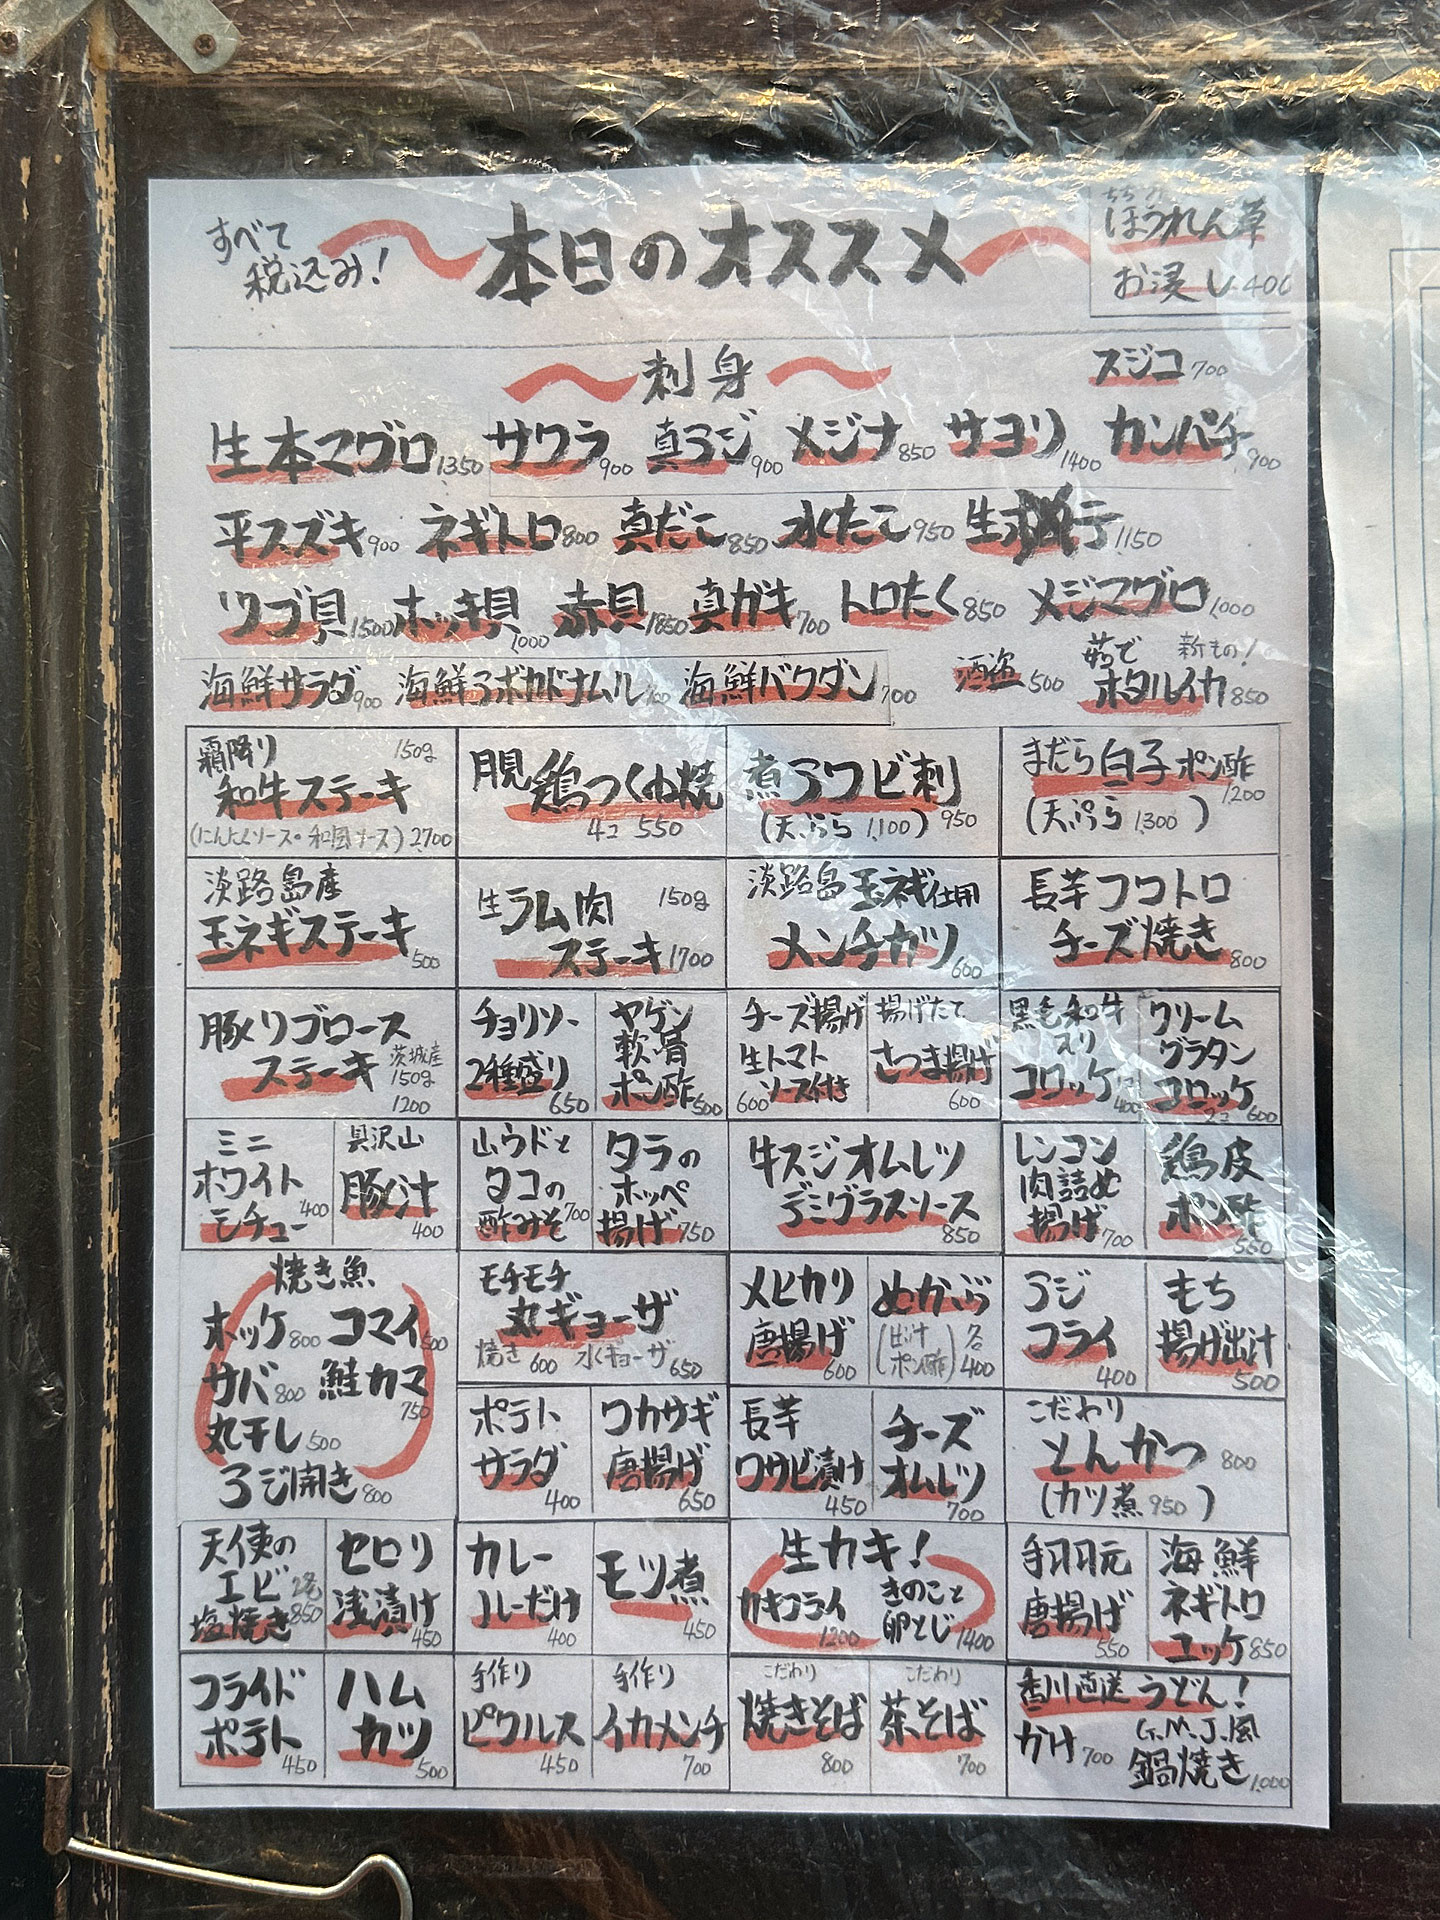 すべて
税込み!
本日のオススメ
ほうれん草
お浸し 400
刺身
スジコ 700
生本マグロ 1350 サワラ 900 真アジ 900 メジナ 850 サヨリ 1400 カンパチ 900
平スズキ 900 ネギトロ 800 真だこ 850 水だこ 950 生 1150
ツブ貝 1500 ホッキ貝 1000 赤貝 1850 真ガキ 700 トロたく 850 メジマグロ 1,000
海鮮サラダ 900 海鮮アボカドナムル 海鮮バクダン 700 酒盗 500
茹で 新もの!
ホタルイカ 850
霜降り 150g
和牛ステーキ
(にんにくソース・和風ソース) 2,700
月見 鶏つくね焼
4コ 550
煮アワビ刺 950
(天ぷら 1,100)
まだら白子 ポン酢 1200
(天ぷら 1,300)
淡路島産
玉ネギステーキ 500
生ラム肉 150g
ステーキ 1700
淡路島 玉ネギ仕用
メンチカツ 600
長芋フワトロ
チーズ焼き 800
豚リブロース
ステーキ
茨城産
150g
1200
チョリソー
2種盛り
650
ヤゲン
軟骨
ポン酢 500
チーズ揚げ
生トマト
ソース付き
600
揚げたて
さつま揚げ
600
黒毛和牛
入り
コロッケ
400
クリーム
グラタン
コロッケ
2コ 600
ミニ
ホワイト
シチュー 400
具沢山
豚汁
400
山ウドと
タコの
酢みそ 700
タラの
ホッペ
揚げ 750
牛スジオムレツ
デミグラスソース
850
レンコン
肉詰め
揚げ 700
鶏皮
ポン酢
550
焼き魚
ホッケ 800 コマイ 500
サバ 800 鮭カマ 750
丸干し 500
アジ開き 800
モチモチ
丸ギョーザ
焼き 600 水ギョーザ 650
メヒカリ
唐揚げ
600
めかぶ
(出汁 ポン酢) 各 400
アジ
フライ
400
もち
揚げ出汁
500
ポテト
サラダ
400
ワカサギ
唐揚げ
650
長芋
ワサビ漬け
450
チーズ
オムレツ
700
こだわり
とんかつ 800
(カツ煮 950)
天使の
エビ
塩焼き
2尾 850
セロリ
浅漬け
450
カレー
ルーだけ
400
モツ煮
450
生カキ!
カキフライ
1200
きのこと
卵とじ 1400
手羽元
唐揚げ
550
海鮮
ネギトロ
ユッケ 850
フライド
ポテト
450
ハム
カツ
500
手作り
ピクルス
450
手作り
イカメンチ
700
こだわり
焼きそば
800
こだわり
茶そば
700
香川直送 うどん!
かけ 700
G.M.J.風
鍋焼き 1,000